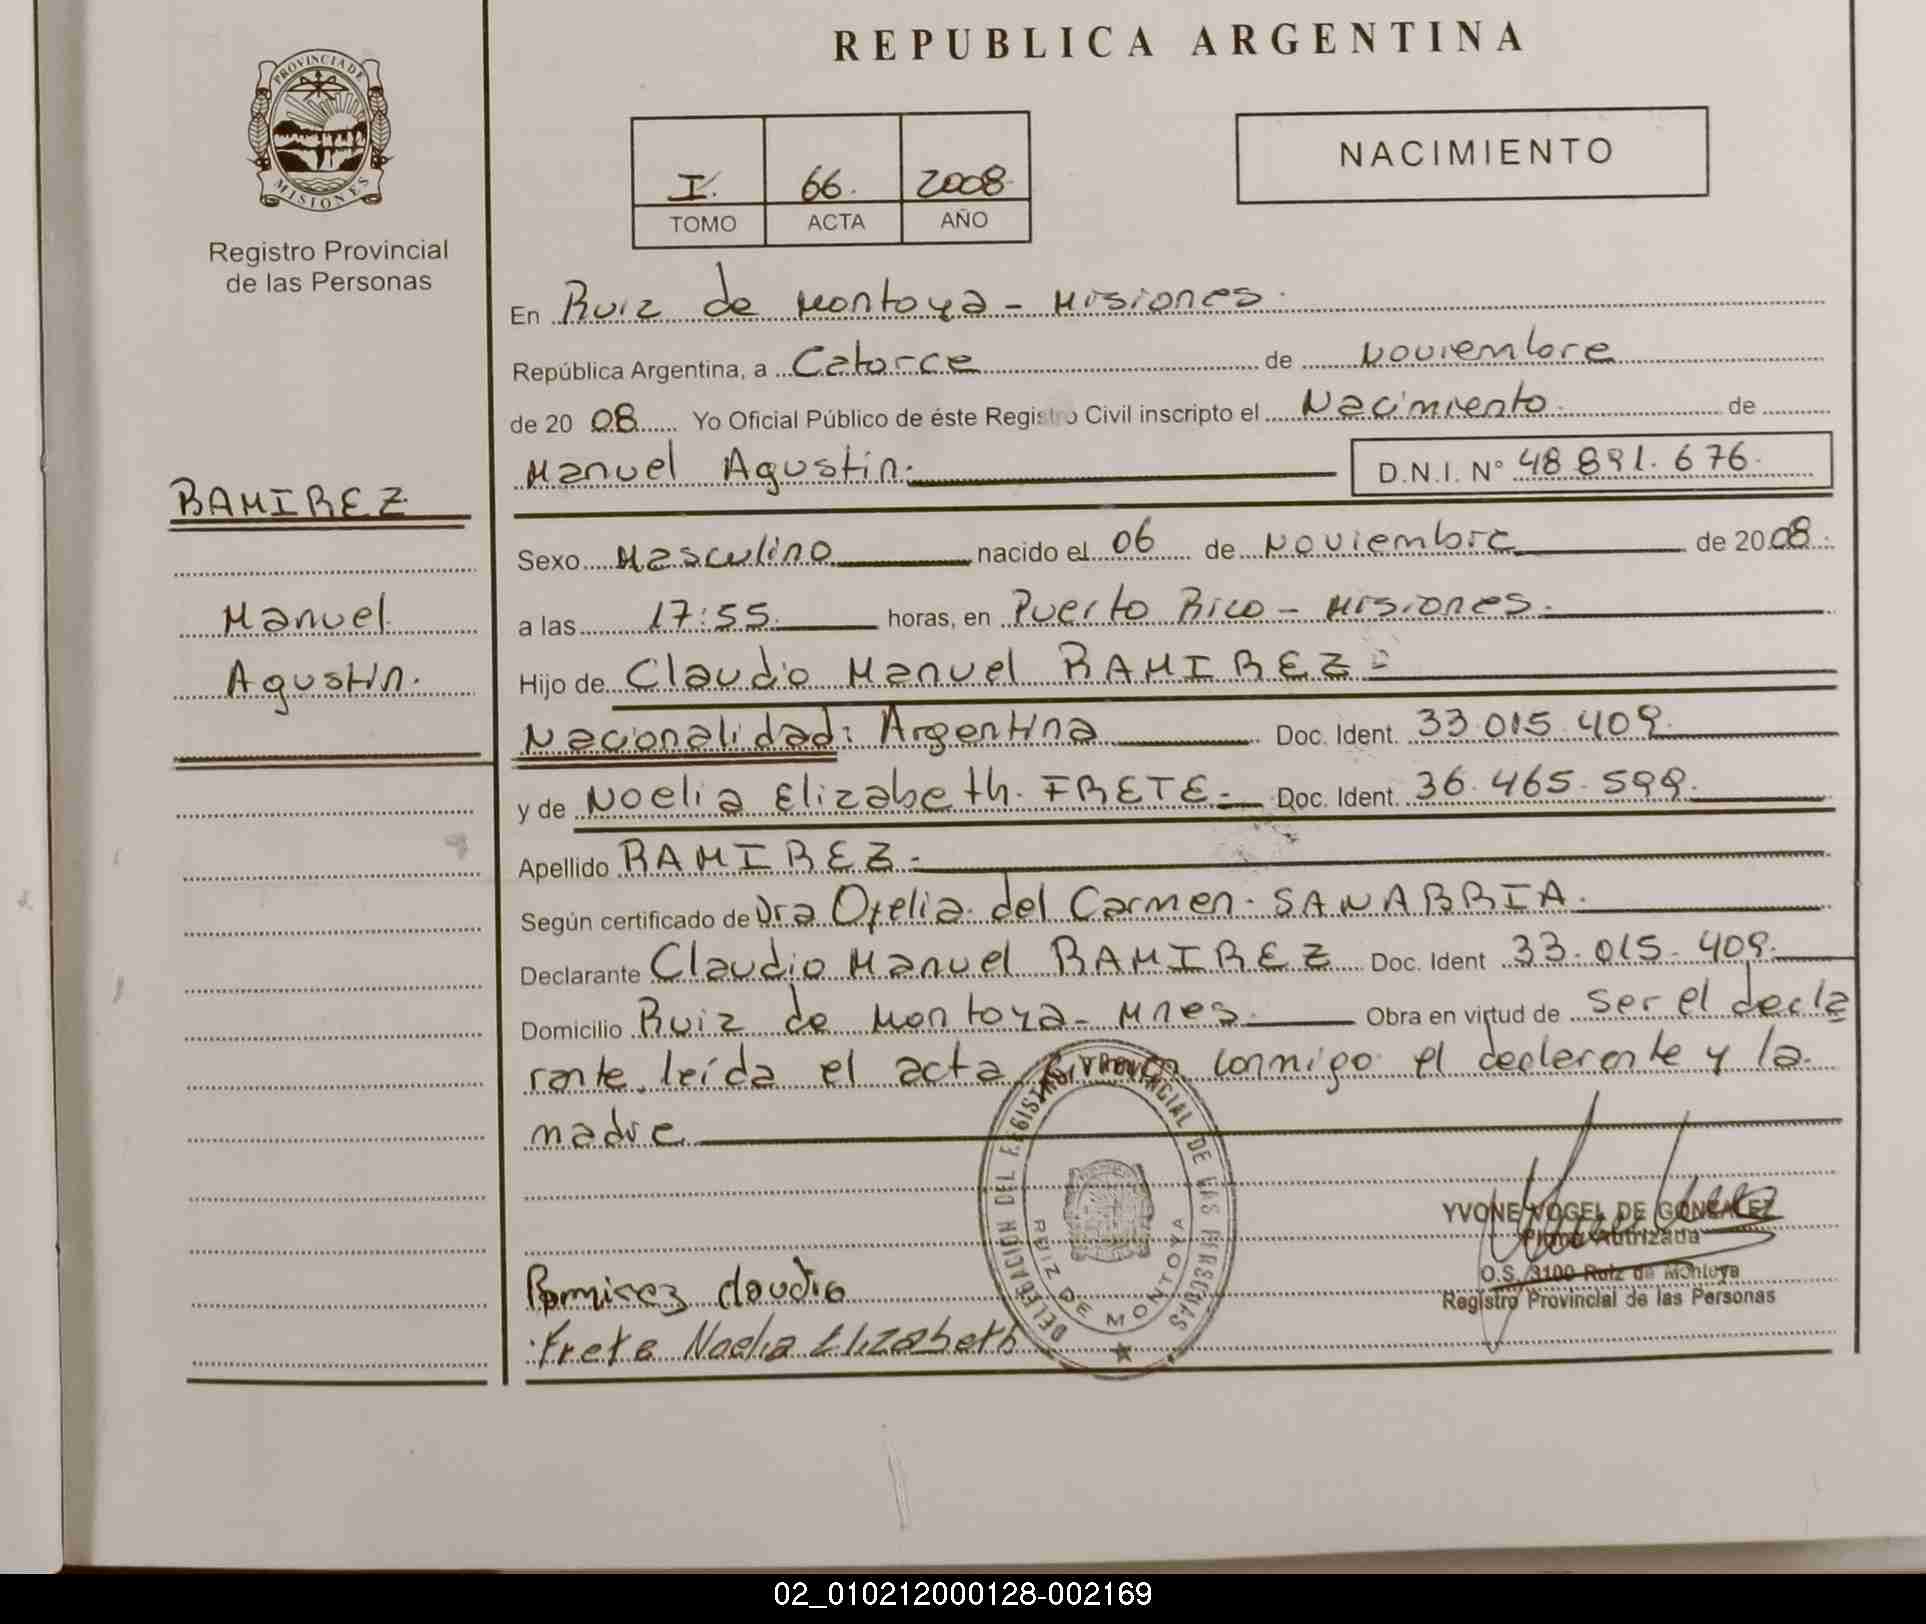 REPUBLICA ARGENTINA
PROVINCIA DE
MISIONES
Registro Provincial
de las Personas
I. 66. 2008.
TOMO ACTA AÑO
NACIMIENTO
En Ruiz de Montoya - Misiones.
República Argentina, a Catorce de Noviembre
de 20 08 Yo Oficial Público de éste Registro Civil inscripto el Nacimiento de
Manuel Agustin. D.N.I. N° 48 891. 676.
RAMIREZ
Manuel
Agustin.
Sexo Masculino nacido el 06 de Noviembre de 20 08.
a las 17:55 horas, en Puerto Rico - Misiones.
Hijo de Claudio Manuel RAMIREZ -
Nacionalidad: Argentina Doc. Ident. 33.015.409.
y de Noelia Elizabeth. FRETE - Doc. Ident. 36.465.599.
Apellido RAMIREZ -
Según certificado de Dra Ofelia del Carmen - SANABRIA.
Declarante Claudio Manuel RAMIREZ Doc. Ident 33.015.409.
Domicilio Ruiz de Montoya - Mnes. Obra en virtud de ser el decla
rante, leída el acta conmigo el declarante y la
madre
DELEGACION DEL REGISTRO PROVINCIAL DE LAS PERSONAS
RUIZ DE MONTOYA
YVONE VOGEL DE GONZALEZ
Firma Autrizada
O.S. 3100 Ruiz de Montoya
Registro Provincial de las Personas
Ramirez claudio
Frete Noelia Elizabeth
02_010212000128-002169